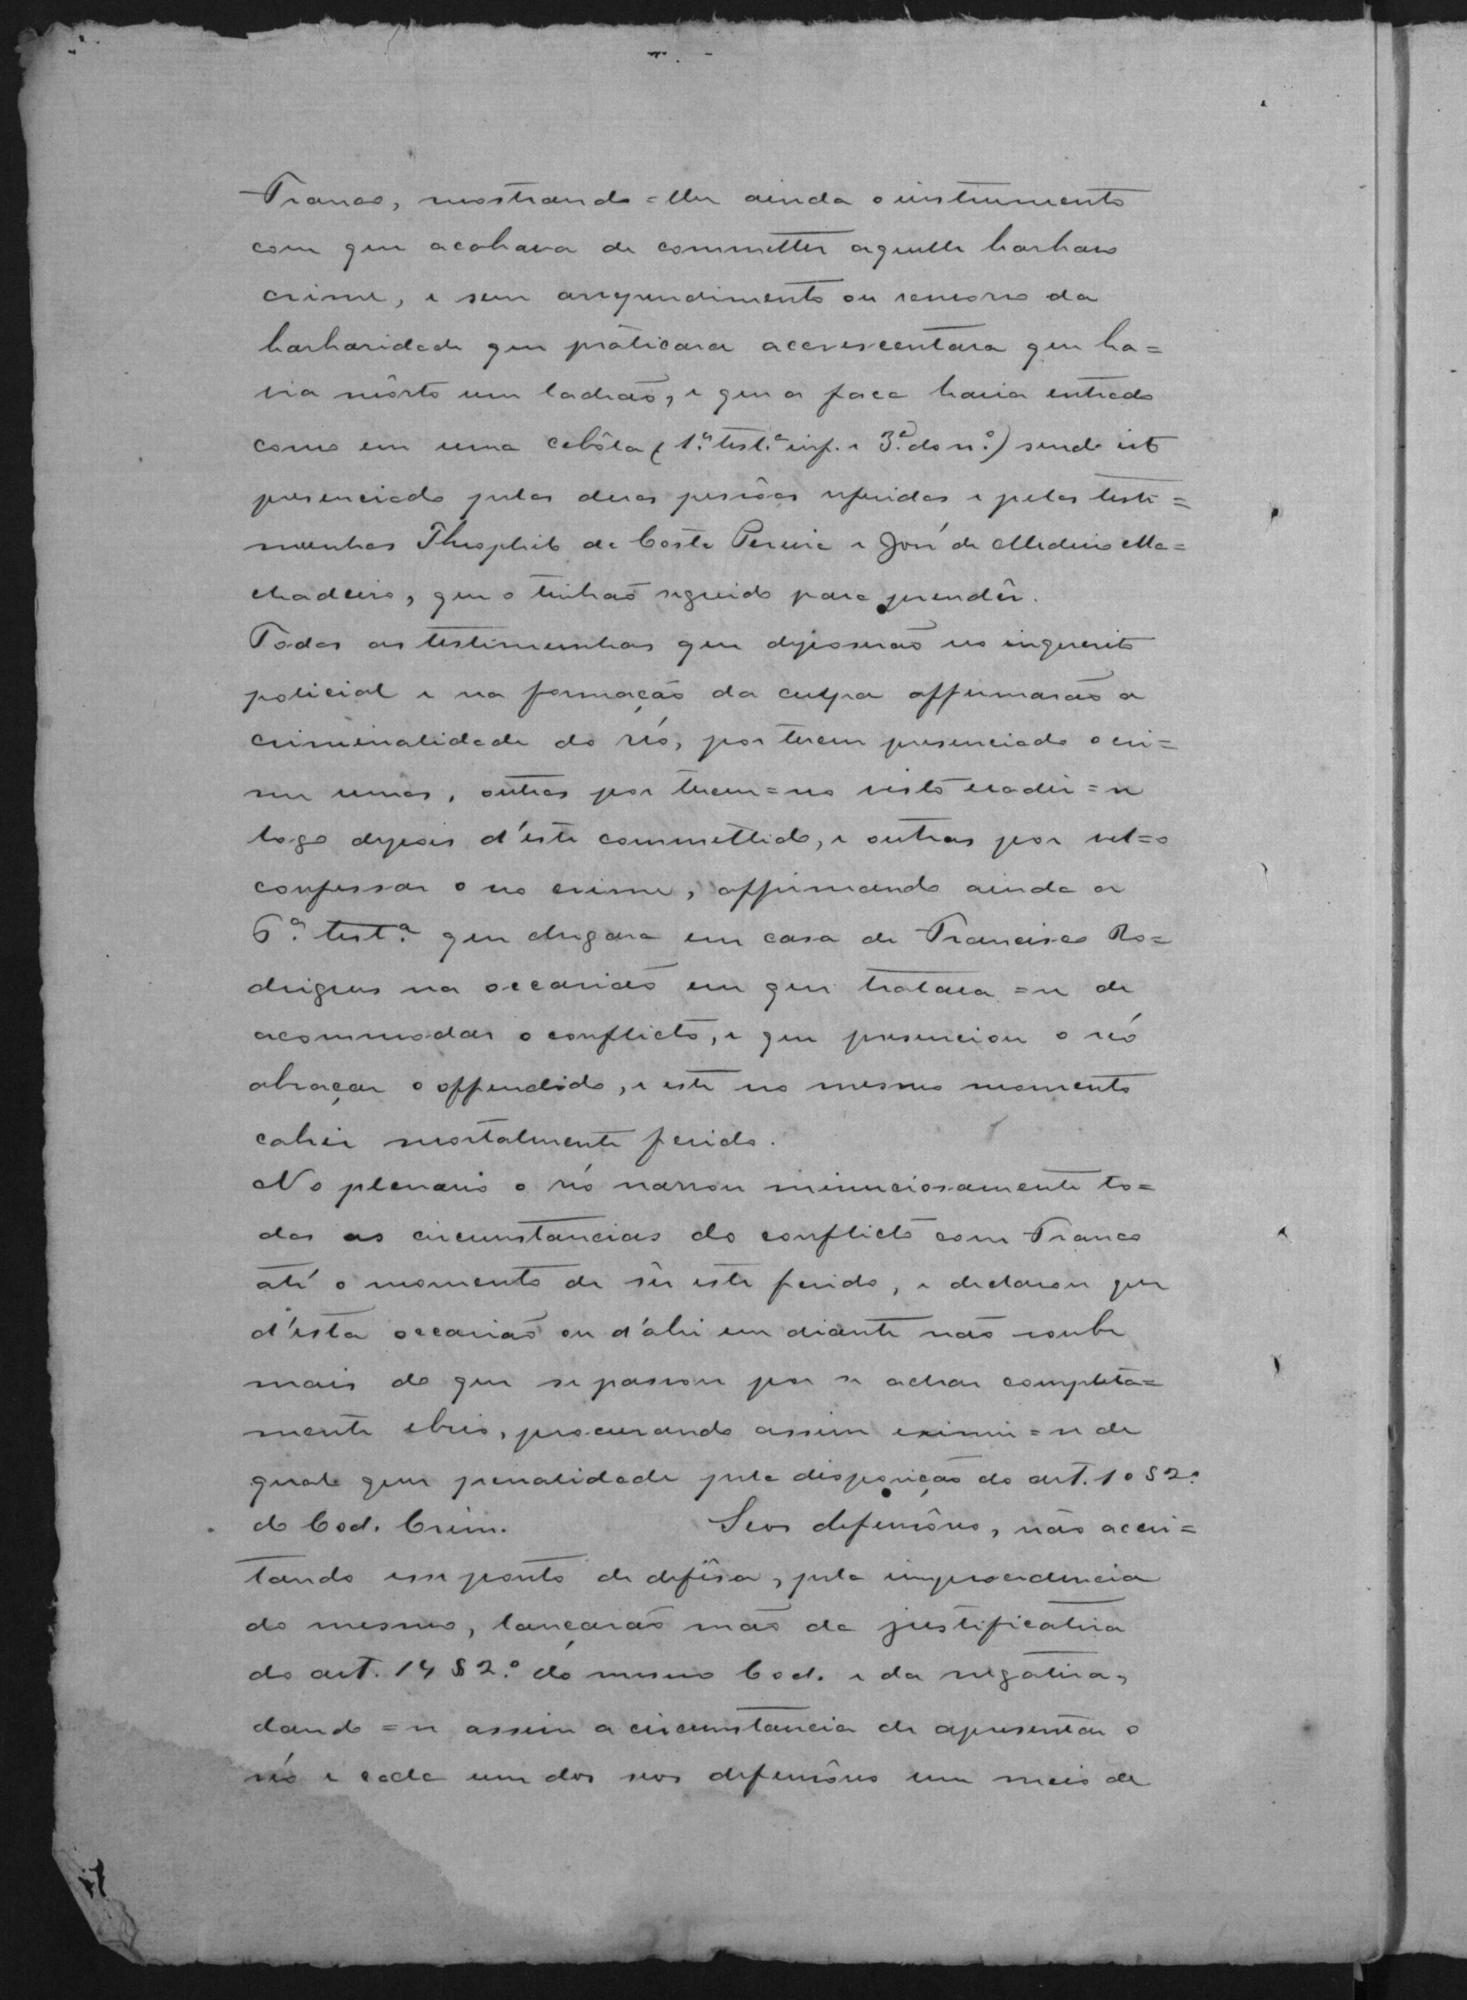 Franco, mostrando=lhe ainda o instrumento
com que acabava de commetter aquelle barbaro
crime, e sem arrependimento ou remorso da
barbaridade que praticara accrescentara que ha=
via môrto um ladrão, e que a faca havia entrado
como em uma cebôla (1.ª test.ª inf. e 3.ª do n.º) sendo isto
presenciado pelas duas pessôas referidas e pelas teste=
munhas Theophilo da Costa Pereira e José de Medeiros Ma=
chadeiro, que o tinhão seguido para prendêr.
Todas as testimunhas que depuserão no inquerito
policial e na formação da culpa affirmarão a
criminalidade do réo, por terem presenciado o cri=
me umas, outras por terem=no visto evadir=se
logo depois d'este commettido, e outras por vel=o
confessar o seo crime, affirmando ainda a
6.ª test.ª que chegara em casa de Francisco Ro=
drigues na occasião em que tratava=se de
accommodar o conflicto, e que presenciou o réo
abraçar o offendido, e este no mesmo momento
cahir mortalmente ferido.
No plenario o réo narrou minuciosamente to=
das as circumstancias do conflicto com Franco
até o momento de sêr este ferido, e declarou que
d'esta occasião ou d'ahi em diante não soube
mais do que se passou por se achar completa=
mente ebrio, procurando assim eximir=se de
qual quer penalidade pela disposição do art. 10 § 2.º
do Cod. Crim. Seos defensôres, não accei=
tando esse ponto de defêsa, pela improcedencia
do mesmo, lançarão mão da justificativa
do art. 14 § 2.º do mesmo Cod. e da negativa,
dando=se assim a circumstancia de apresentar o
réo e cada um dos seos defensôres um meio de